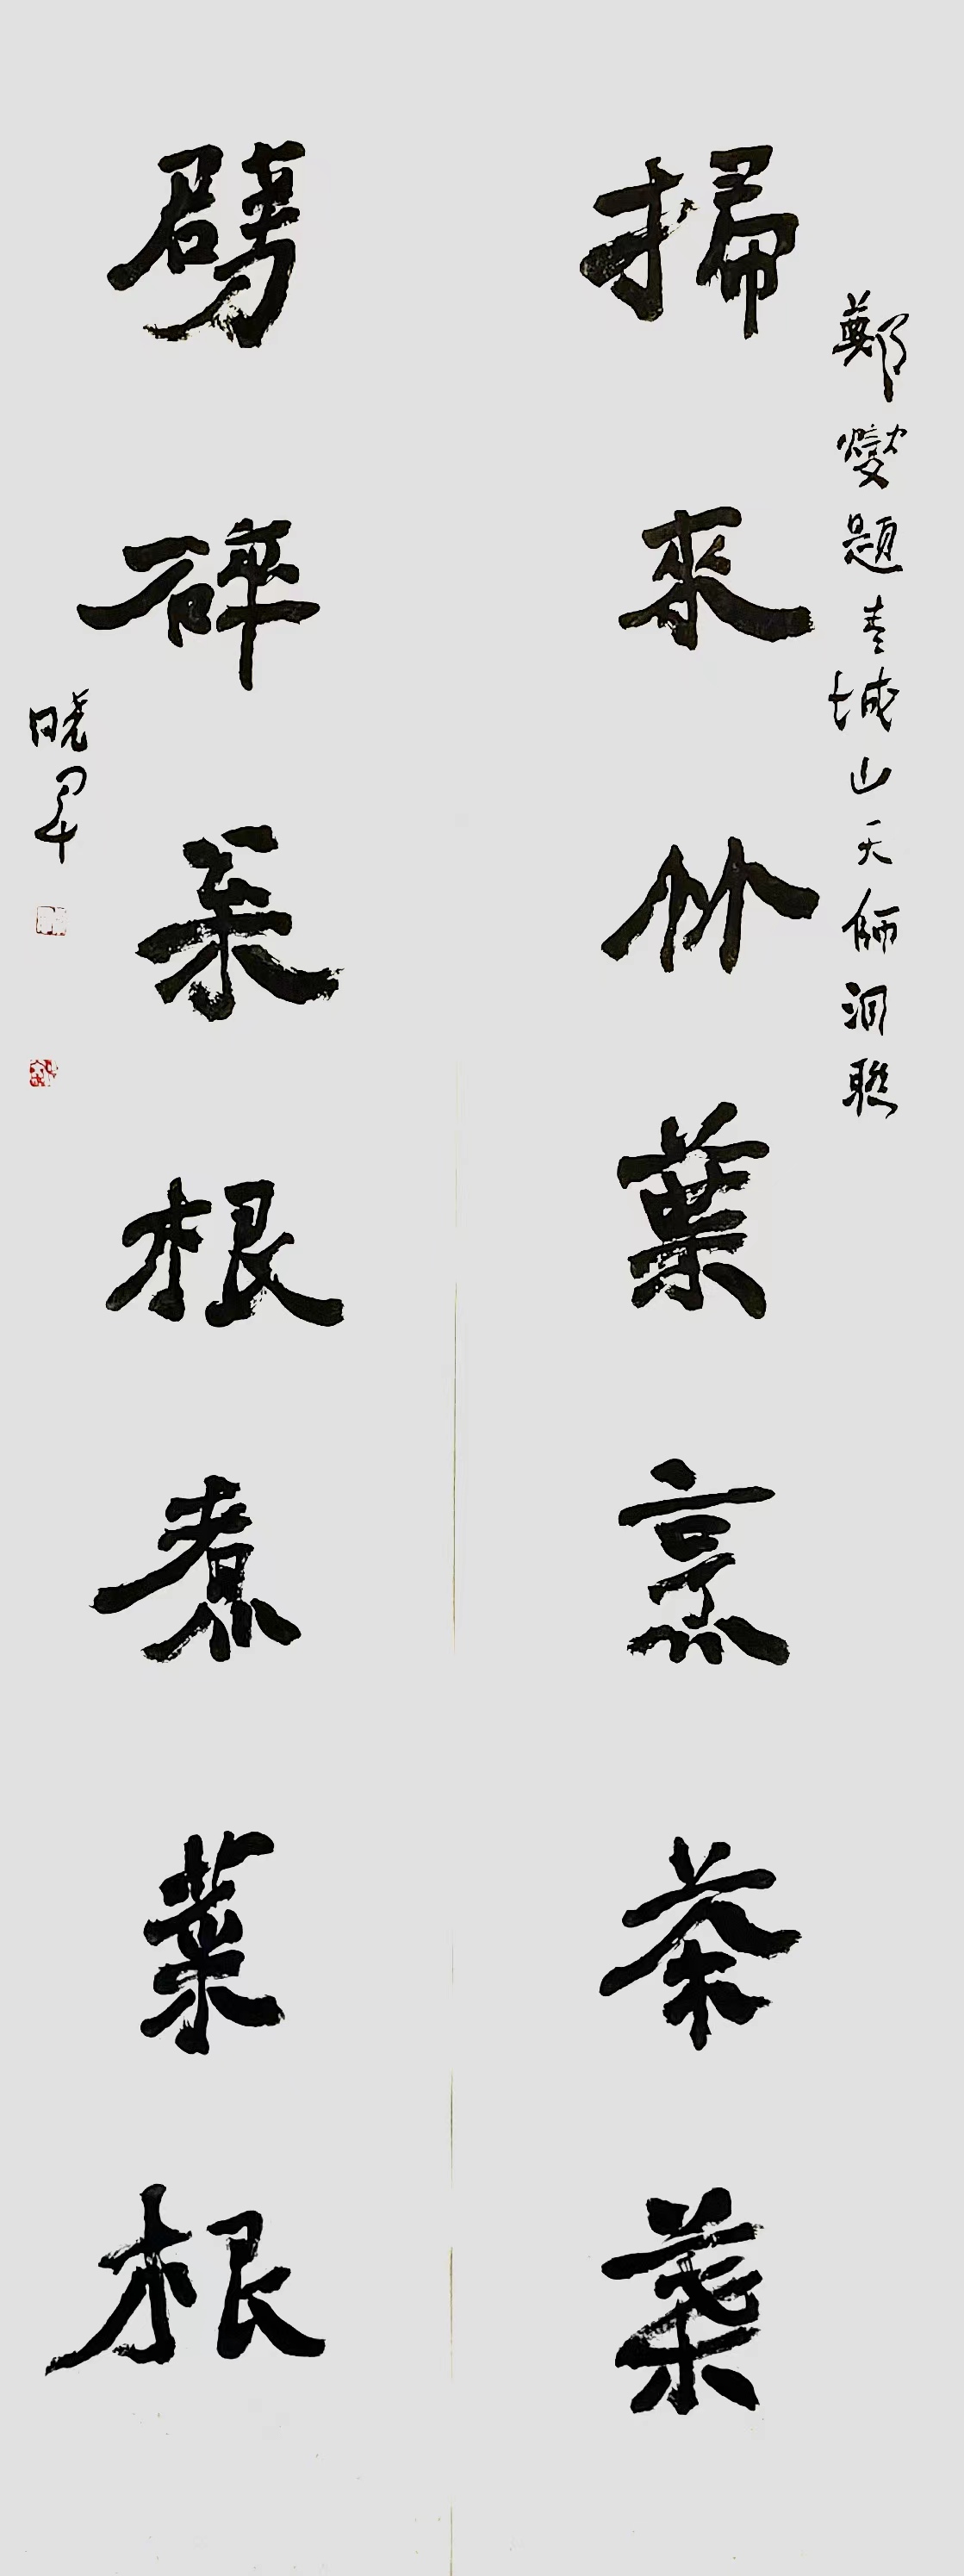 鄭燮題青城山天師洞聯
掃來竹葉烹茶葉
劈碎根煮菜根
晓军